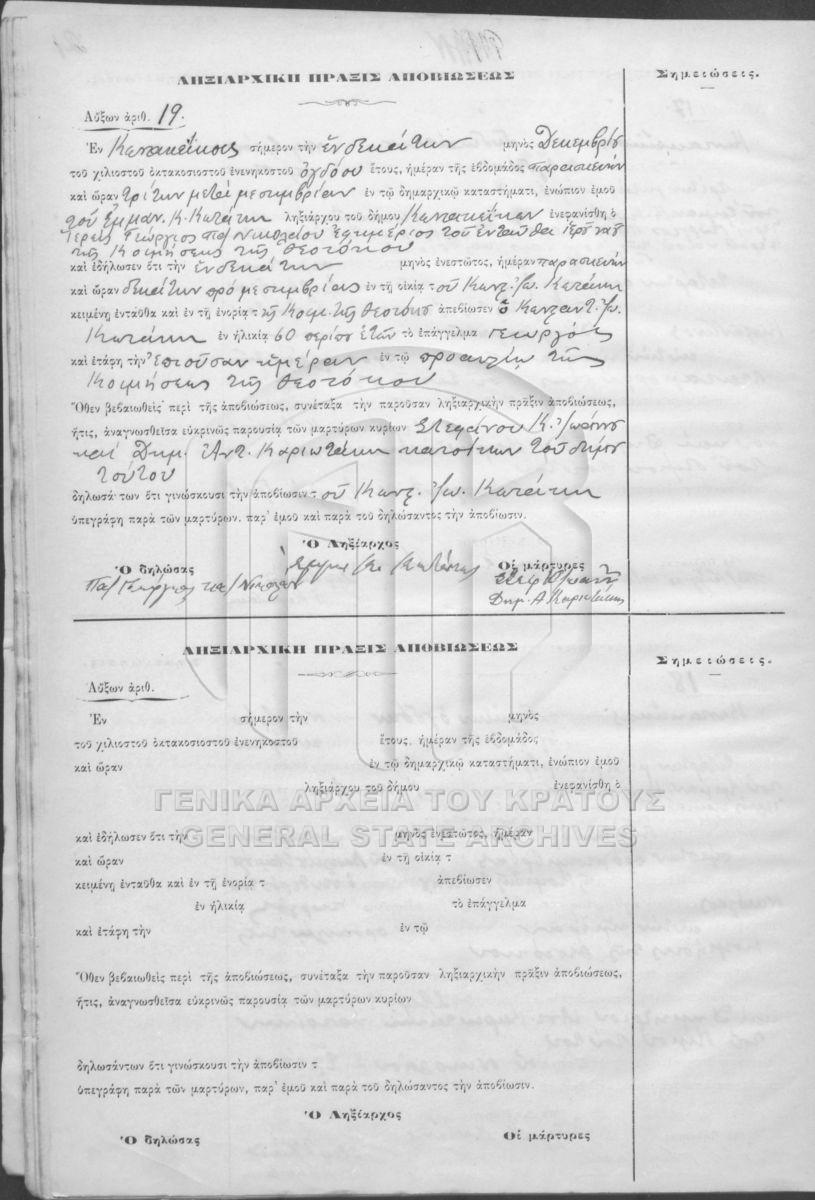 ΛΗΞΙΑΡΧΙΚΗ ΠΡΑΞΙΣ ΑΠΟΒΙΩΣΕΩΣ
Σημειώσεις.
Αὔξων ἀριθ. 19.
Ἐν σήμερον τὴν ἑνδεκάτην μηνὸς Δεκεμβρίου
τοῦ χιλιοστοῦ ὀκτακοσιοστοῦ ἐνενηκοστοῦ ὀγδόου ἔτους, ἡμέραν τῆς ἑβδομάδος παρασκευὴν
καὶ ὥραν τρίτην μετὰ μεσημβρίαν ἐν τῷ δημαρχικῷ καταστήματι, ἐνώπιον ἐμοῦ
τοῦ Ἐμμαν. Κ. ληξιάρχου τοῦ δήμου ἐνεφανίσθη ὁ
ἱερεὺς Γεώργιος Νικολάου ἐφημέριος τοῦ ἐνταῦθα ἱεροῦ ναοῦ
τῆς Κοιμήσεως τῆς Θεοτόκου
καὶ ἐδήλωσεν ὅτι τὴν ἑνδεκάτην μηνὸς ἐνεστῶτος, ἡμέραν παρασκευὴν
καὶ ὥραν δεκάτην πρὸ μεσημβρίας ἐν τῇ οἰκίᾳ τοῦ Ἰω.
κειμένῃ ἐνταῦθα καὶ ἐν τῇ ἐνορίᾳ τῆς Κοιμ. τῆς Θεοτόκου ἀπεβίωσεν ὁ Ἰω.
ἐν ἡλικίᾳ 60 περίπου ἐτῶν τὸ ἐπάγγελμα γεωργὸς
καὶ ἐτάφη τὴν ἐπιοῦσαν ἡμέραν ἐν τῷ προαυλίῳ τῆς
Κοιμήσεως τῆς Θεοτόκου
Ὅθεν βεβαιωθεὶς περὶ τῆς ἀποβιώσεως, συνέταξα τὴν παροῦσαν ληξιαρχικὴν πρᾶξιν ἀποβιώσεως,
ἥτις, ἀναγνωσθεῖσα εὐκρινῶς παρουσίᾳ τῶν μαρτύρων κυρίων Στεφάνου Κ. Ἰωάννου
καὶ Δημ. Ἀντ. Καριωτάκη κατοίκων τοῦ δήμου
τούτου
δηλωσάντων ὅτι γινώσκουσι τὴν ἀποβίωσιν τοῦ Ἰω.
ὑπεγράφη παρὰ τῶν μαρτύρων, παρ' ἐμοῦ καὶ παρὰ τοῦ δηλώσαντος τὴν ἀποβίωσιν.
Ὁ Ληξίαρχος
Ὁ δηλώσας
Οἱ μάρτυρες
Δημ. Α. Καριωτάκης
ΛΗΞΙΑΡΧΙΚΗ ΠΡΑΞΙΣ ΑΠΟΒΙΩΣΕΩΣ
Σημειώσεις.
Αὔξων ἀριθ.
Ἐν σήμερον τὴν μηνὸς
τοῦ χιλιοστοῦ ὀκτακοσιοστοῦ ἐνενηκοστοῦ ἔτους, ἡμέραν τῆς ἑβδομάδος
καὶ ὥραν ἐν τῷ δημαρχικῷ καταστήματι, ἐνώπιον ἐμοῦ
ληξιάρχου τοῦ δήμου ἐνεφανίσθη ὁ
ΓΕΝΙΚΑ ΑΡΧΕΙΑ ΤΟΥ ΚΡΑΤΟΥΣ
GENERAL STATE ARCHIVES
καὶ ἐδήλωσεν ὅτι τὴν μηνὸς ἐνεστῶτος, ἡμέραν
καὶ ὥραν ἐν τῇ οἰκίᾳ τ
κειμένῃ ἐνταῦθα καὶ ἐν τῇ ἐνορίᾳ τ ἀπεβίωσεν
ἐν ἡλικίᾳ τὸ ἐπάγγελμα
καὶ ἐτάφη τὴν ἐν τῷ
Ὅθεν βεβαιωθεὶς περὶ τῆς ἀποβιώσεως, συνέταξα τὴν παροῦσαν ληξιαρχικὴν πρᾶξιν ἀποβιώσεως,
ἥτις, ἀναγνωσθεῖσα εὐκρινῶς παρουσίᾳ τῶν μαρτύρων κυρίων
δηλωσάντων ὅτι γινώσκουσι τὴν ἀποβίωσιν τ
ὑπεγράφη παρὰ τῶν μαρτύρων, παρ' ἐμοῦ καὶ παρὰ τοῦ δηλώσαντος τὴν ἀποβίωσιν.
Ὁ Ληξίαρχος
Ὁ δηλώσας
Οἱ μάρτυρες